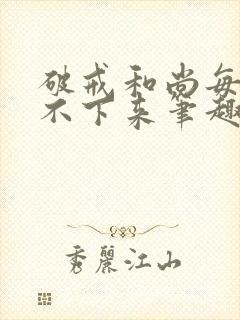 破戒和尚每
不下来笔趣
秀麗江山